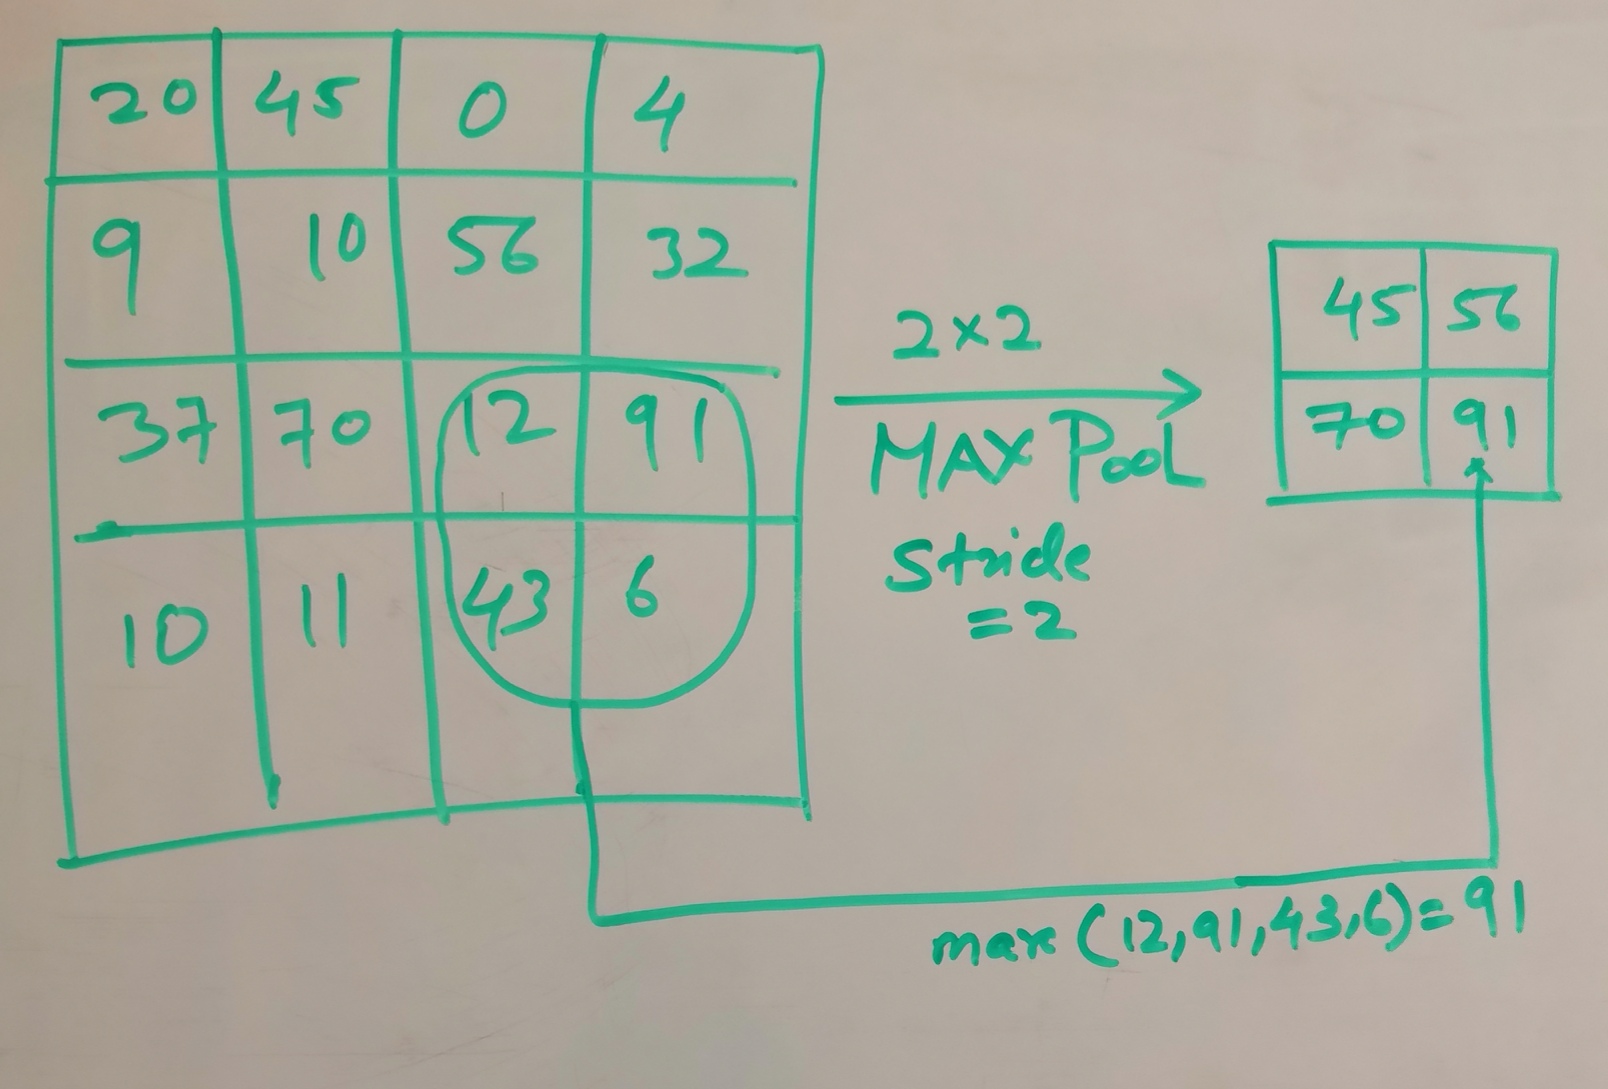 20 45 0 4
9 10 56 32
37 70 12 91
10 11 43 6
2×2
MAX Pool
Stride
=2
45 56
70 91
max (12,91,43,6)=91